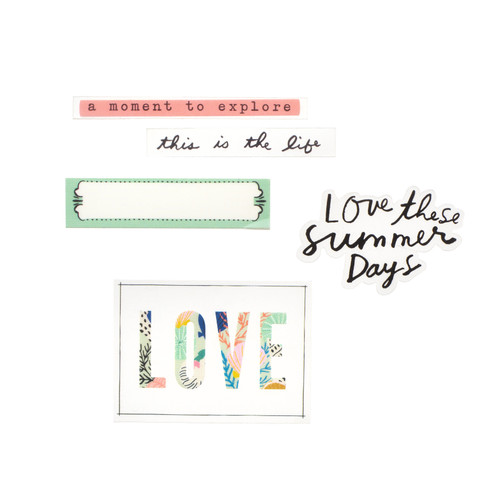 a moment to explore
this is the life
Love these
summer
Days
LOVE